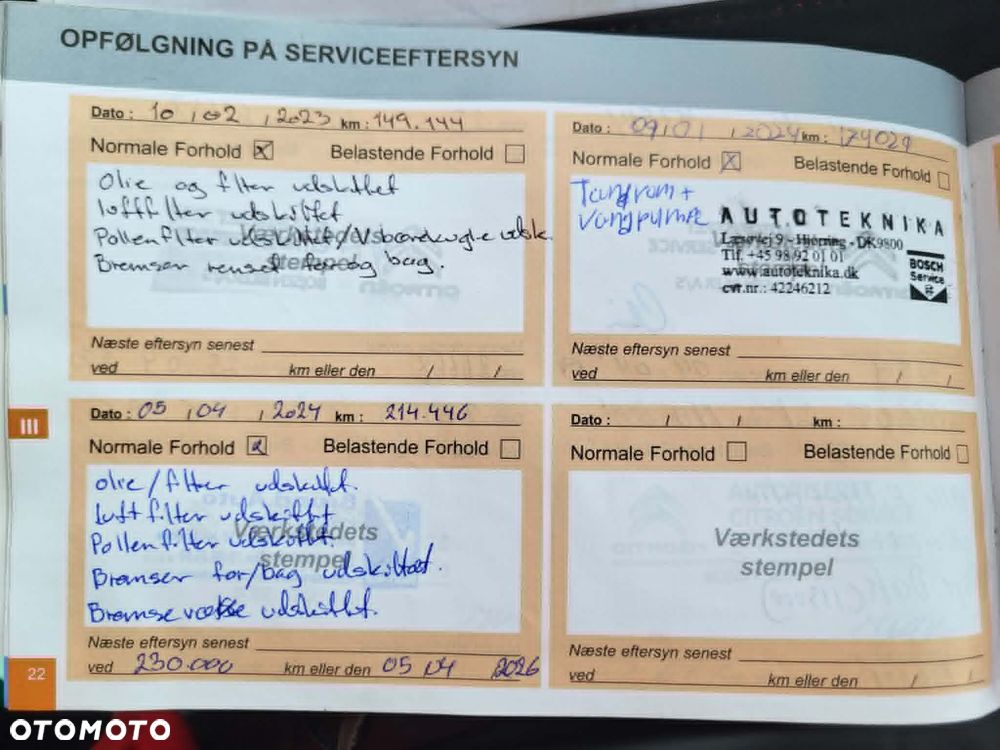 OPFØLGNING PÅ SERVICEEFTERSYN
Dato : 10 / 02 / 2023 km : 149.144
Normale Forhold x Belastende Forhold
Olie og filter udskiftet
luftfilter udskiftet
Pollenfilter udskiftet/
Bremser renset for og bag.
Værkstedets
stempel
Næste eftersyn senest
ved km eller den / /
Dato : 09 / 01 / 2024 km : 174029
Normale Forhold x Belastende Forhold
Tandrem +
Vandpumpe
AUTOTEKNIKA
Læsøvej 9 - Hjørring - DK9800
Tlf. +45 98 92 01 01
www.autoteknika.dk
cvr.nr.: 42246212
BOSCH
Service
Næste eftersyn senest
ved km eller den / /
III
Dato : 05 / 04 / 2024 km : 214.446
Normale Forhold x Belastende Forhold
olie/filter udskiftet.
luftfilter udskiftet
Pollenfilter udskiftet.
Bremser for/bag udskiftet.
Bremsevæske udskiftet.
Værkstedets
stempel
Næste eftersyn senest
ved 230.000 km eller den 05 / 04 2026
Dato : / / km :
Normale Forhold Belastende Forhold
Værkstedets
stempel
Næste eftersyn senest
ved km eller den / /
22
OTOMOTO